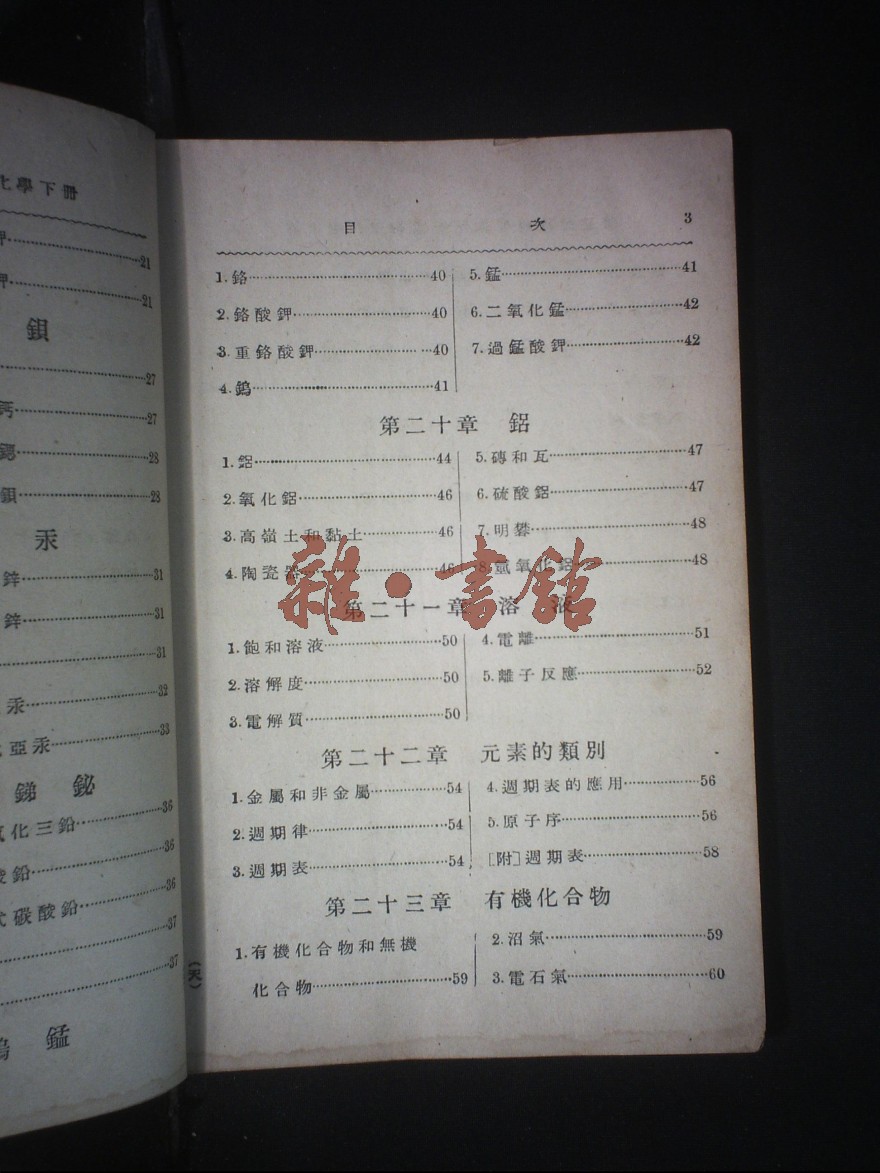 化學下冊
21
21
鋇
27
鈣……27
鍶……28
鋇……28
汞
鋅……31
鋅……31
31
汞……32
亞汞……33
銻 鉍
氧化三鉛……36
酸鉛……36
式碳酸鉛……36
37
37
鎢 錳
目 次 3
1.鉻……40
2.鉻酸鉀……40
3.重鉻酸鉀……40
4.鎢……41
5.錳……41
6.二氧化錳……42
7.過錳酸鉀……42
第二十章 鋁
1.鋁……44
2.氧化鋁……46
3.高嶺土和黏土……46
4.陶瓷器……46
5.磚和瓦……47
6.硫酸鋁……47
7.明礬……48
8.氫氧化鋁……48
雜·書館
第二十一章 溶液
1.飽和溶液……50
2.溶解度……50
3.電解質……50
4.電離……51
5.離子反應……52
第二十二章 元素的類別
1.金屬和非金屬……54
2.週期律……54
3.週期表……54
4.週期表的應用……56
5.原子序……56
[附]週期表……58
第二十三章 有機化合物
1.有機化合物和無機
化合物……59
2.沼氣……59
3.電石氣……60
(天)